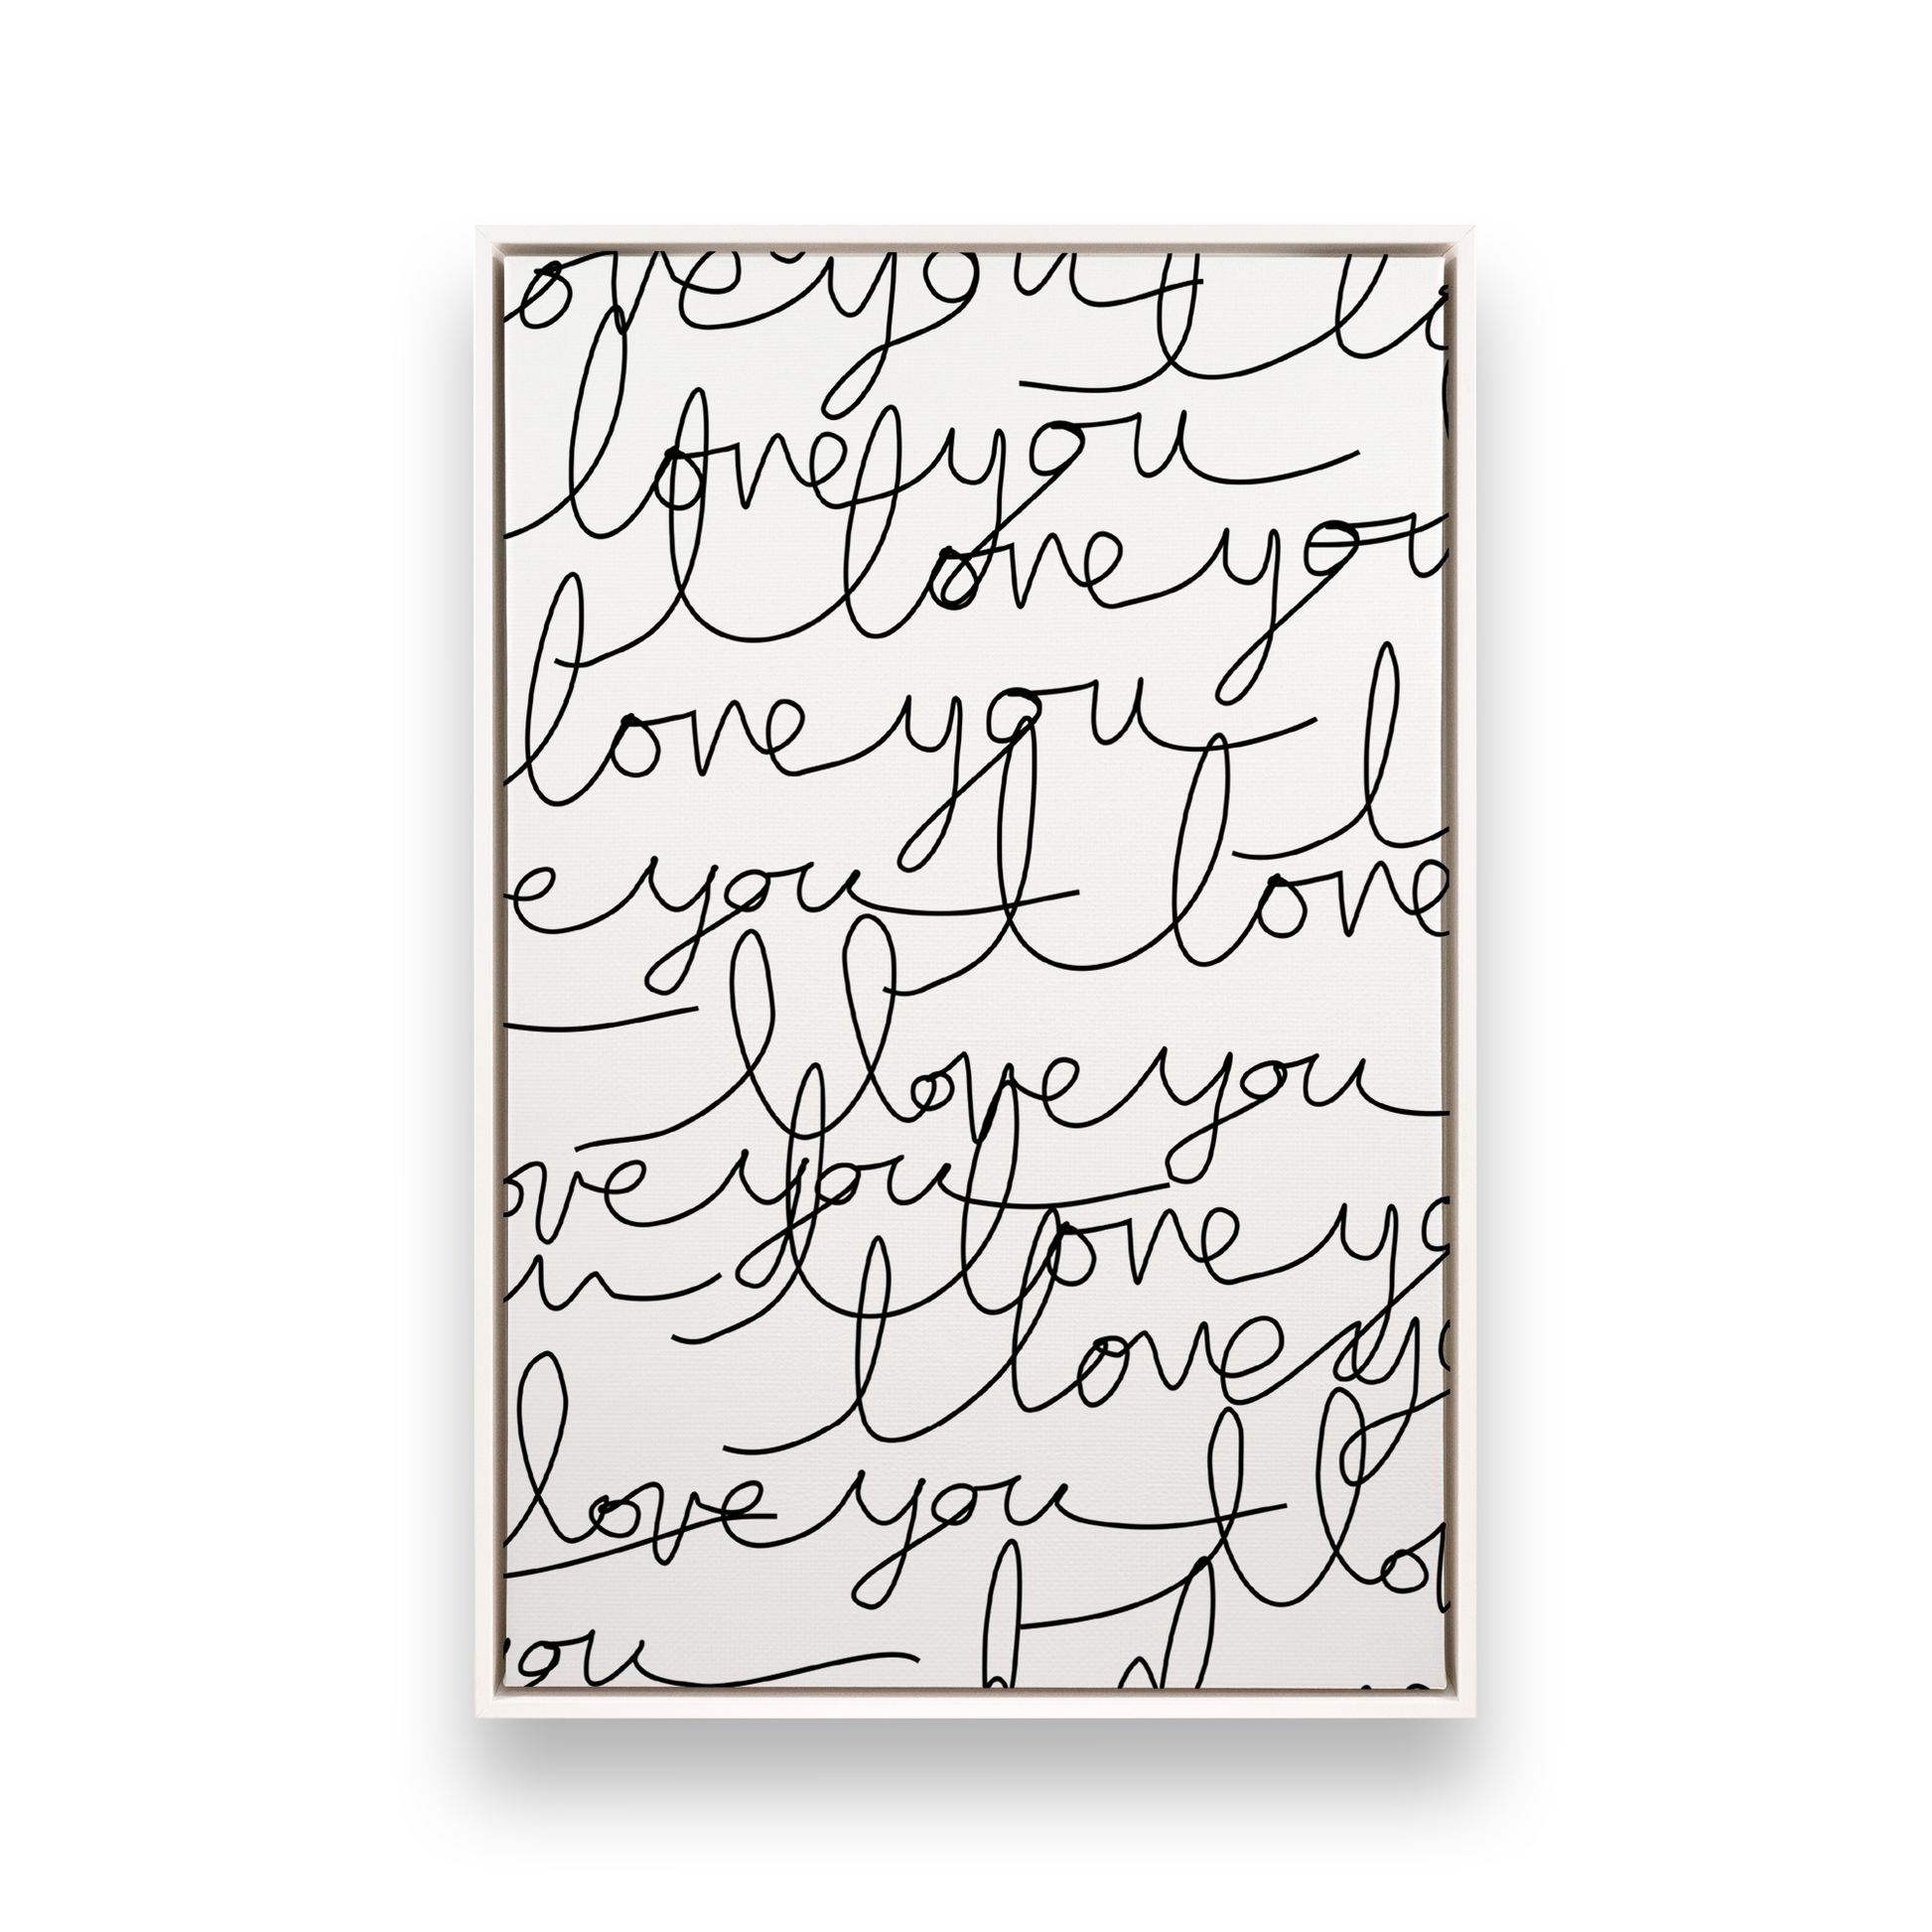 ove you I lo
love you
I love you
love you I
e you I love
I love you
ove you
I love yo
u
I love yo
love you I lo
you